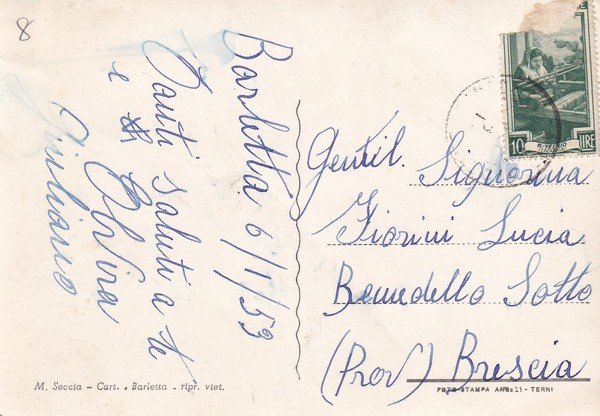 8
Barletta 6/1/53
Tanti saluti a te
e Elvira
Giuliano
Gentil. Signorina
Fiorini Lucia
Benedello Sotto
(Prov) Brescia
10 LIRE
M. Seccia - Cart. - Barletta - ripr. viet.
FOTO-STAMPA ANGELI - TERNI